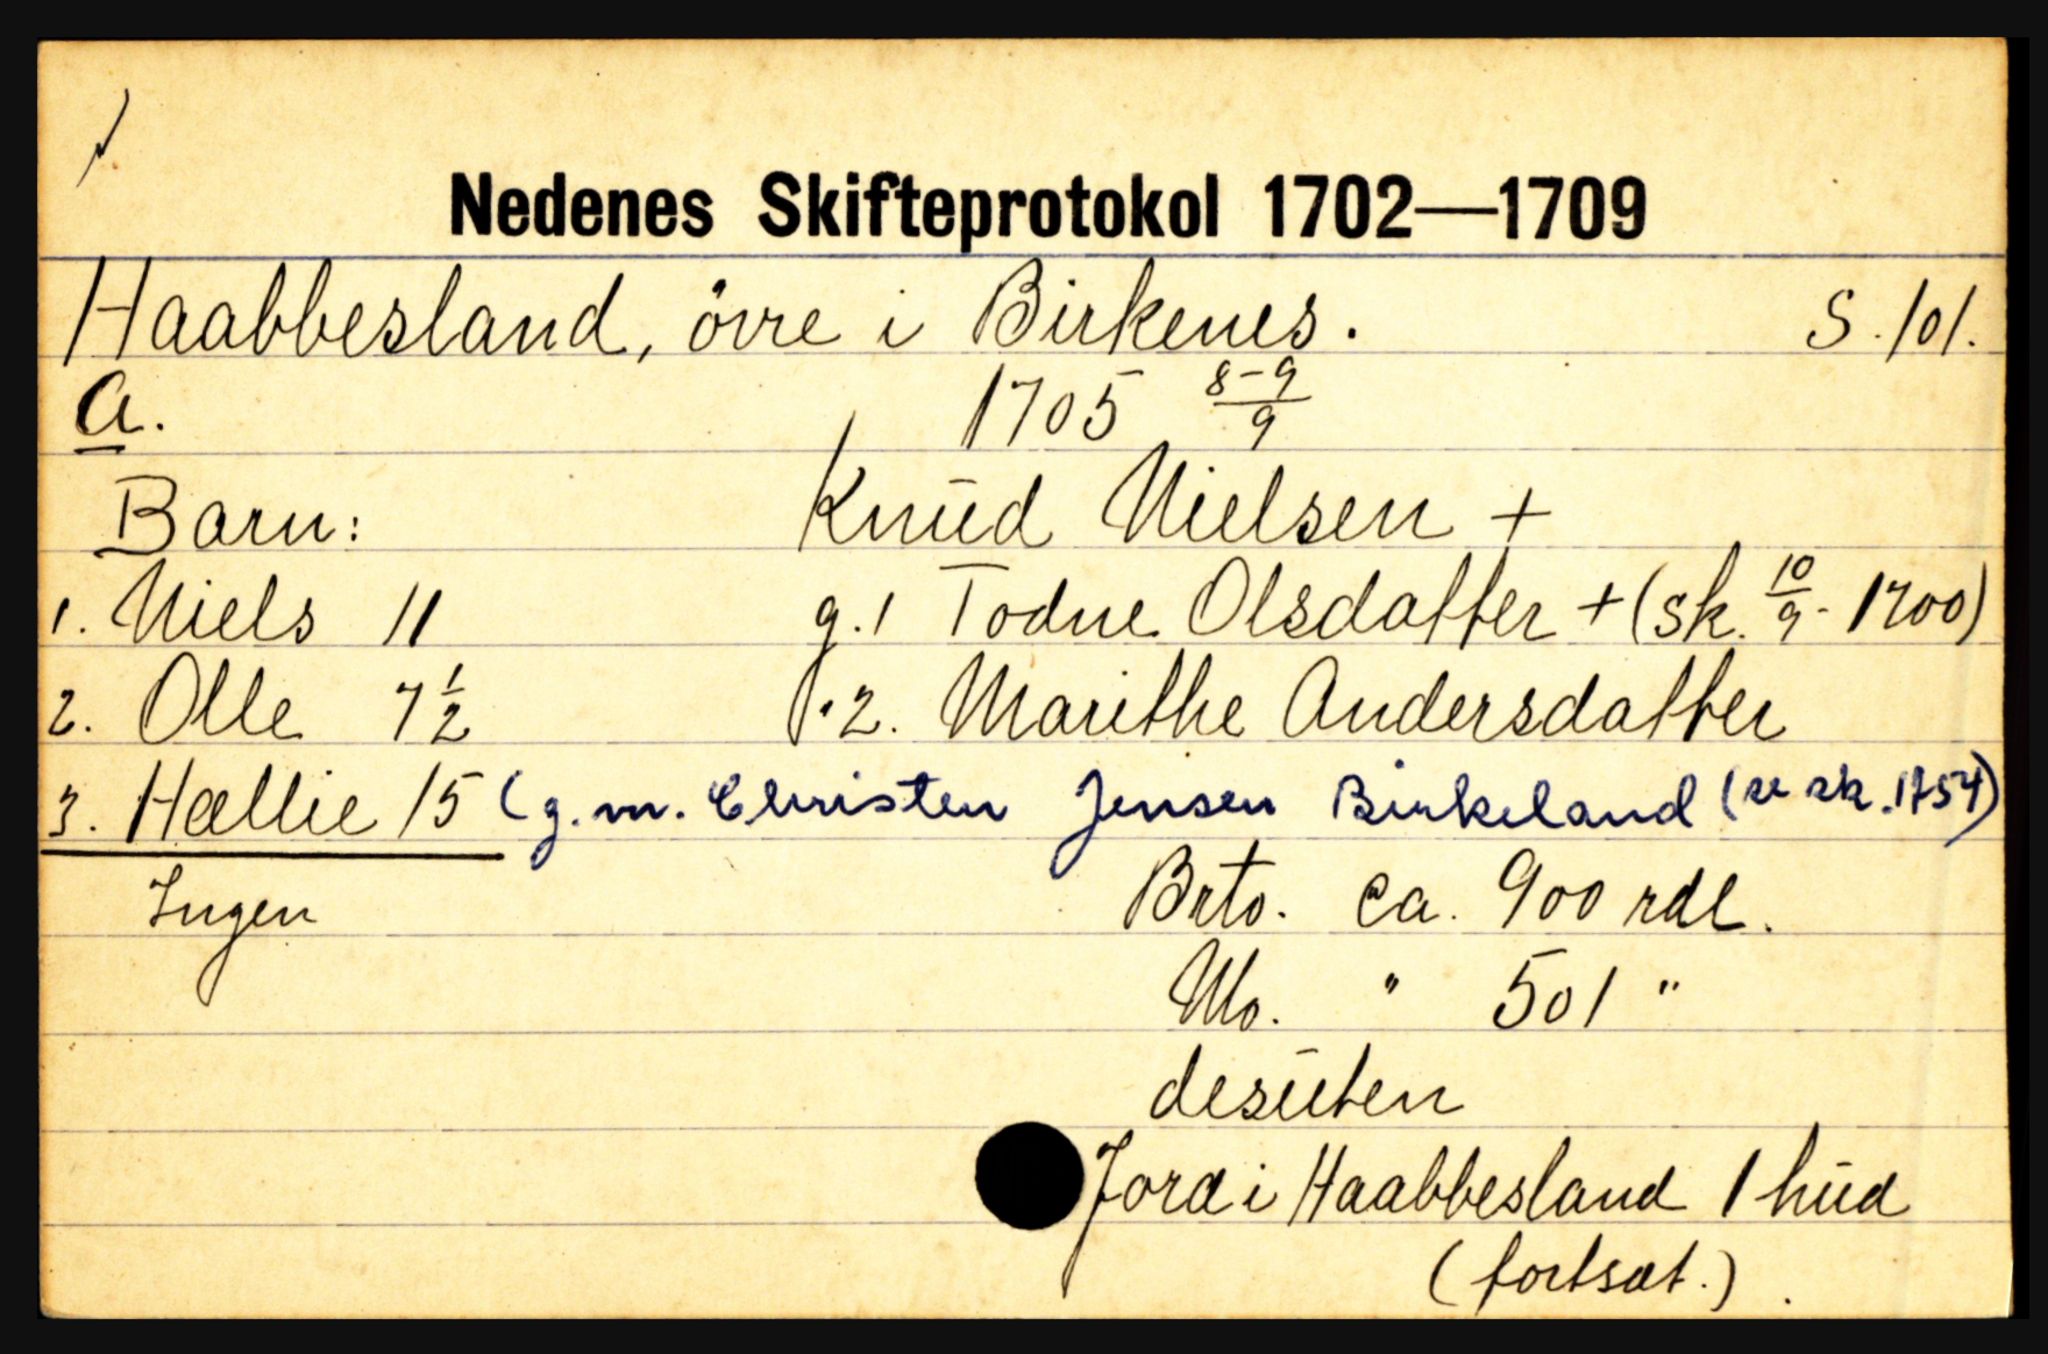 Nedenes Skifteprotokol 1702—1709
Haabbesland, övre i Birkenes. S. 101.
a. 1705 8-9/9
Barn: Knud Nielsen +
1. Niels 11 g. 1 Todne Olsdatter + (sk. 10/9 - 1700)
2. Olle 7 1/2 " 2. Marithe Andersdatter
3. Hællie 15 (g.m. Christen Jensen Birkeland (se sk. 1754)
Ingen Brto. ca. 900 rdl.
No. " 501 "
desuten
Jord i Haabbesland 1 hud
(fortsat.)